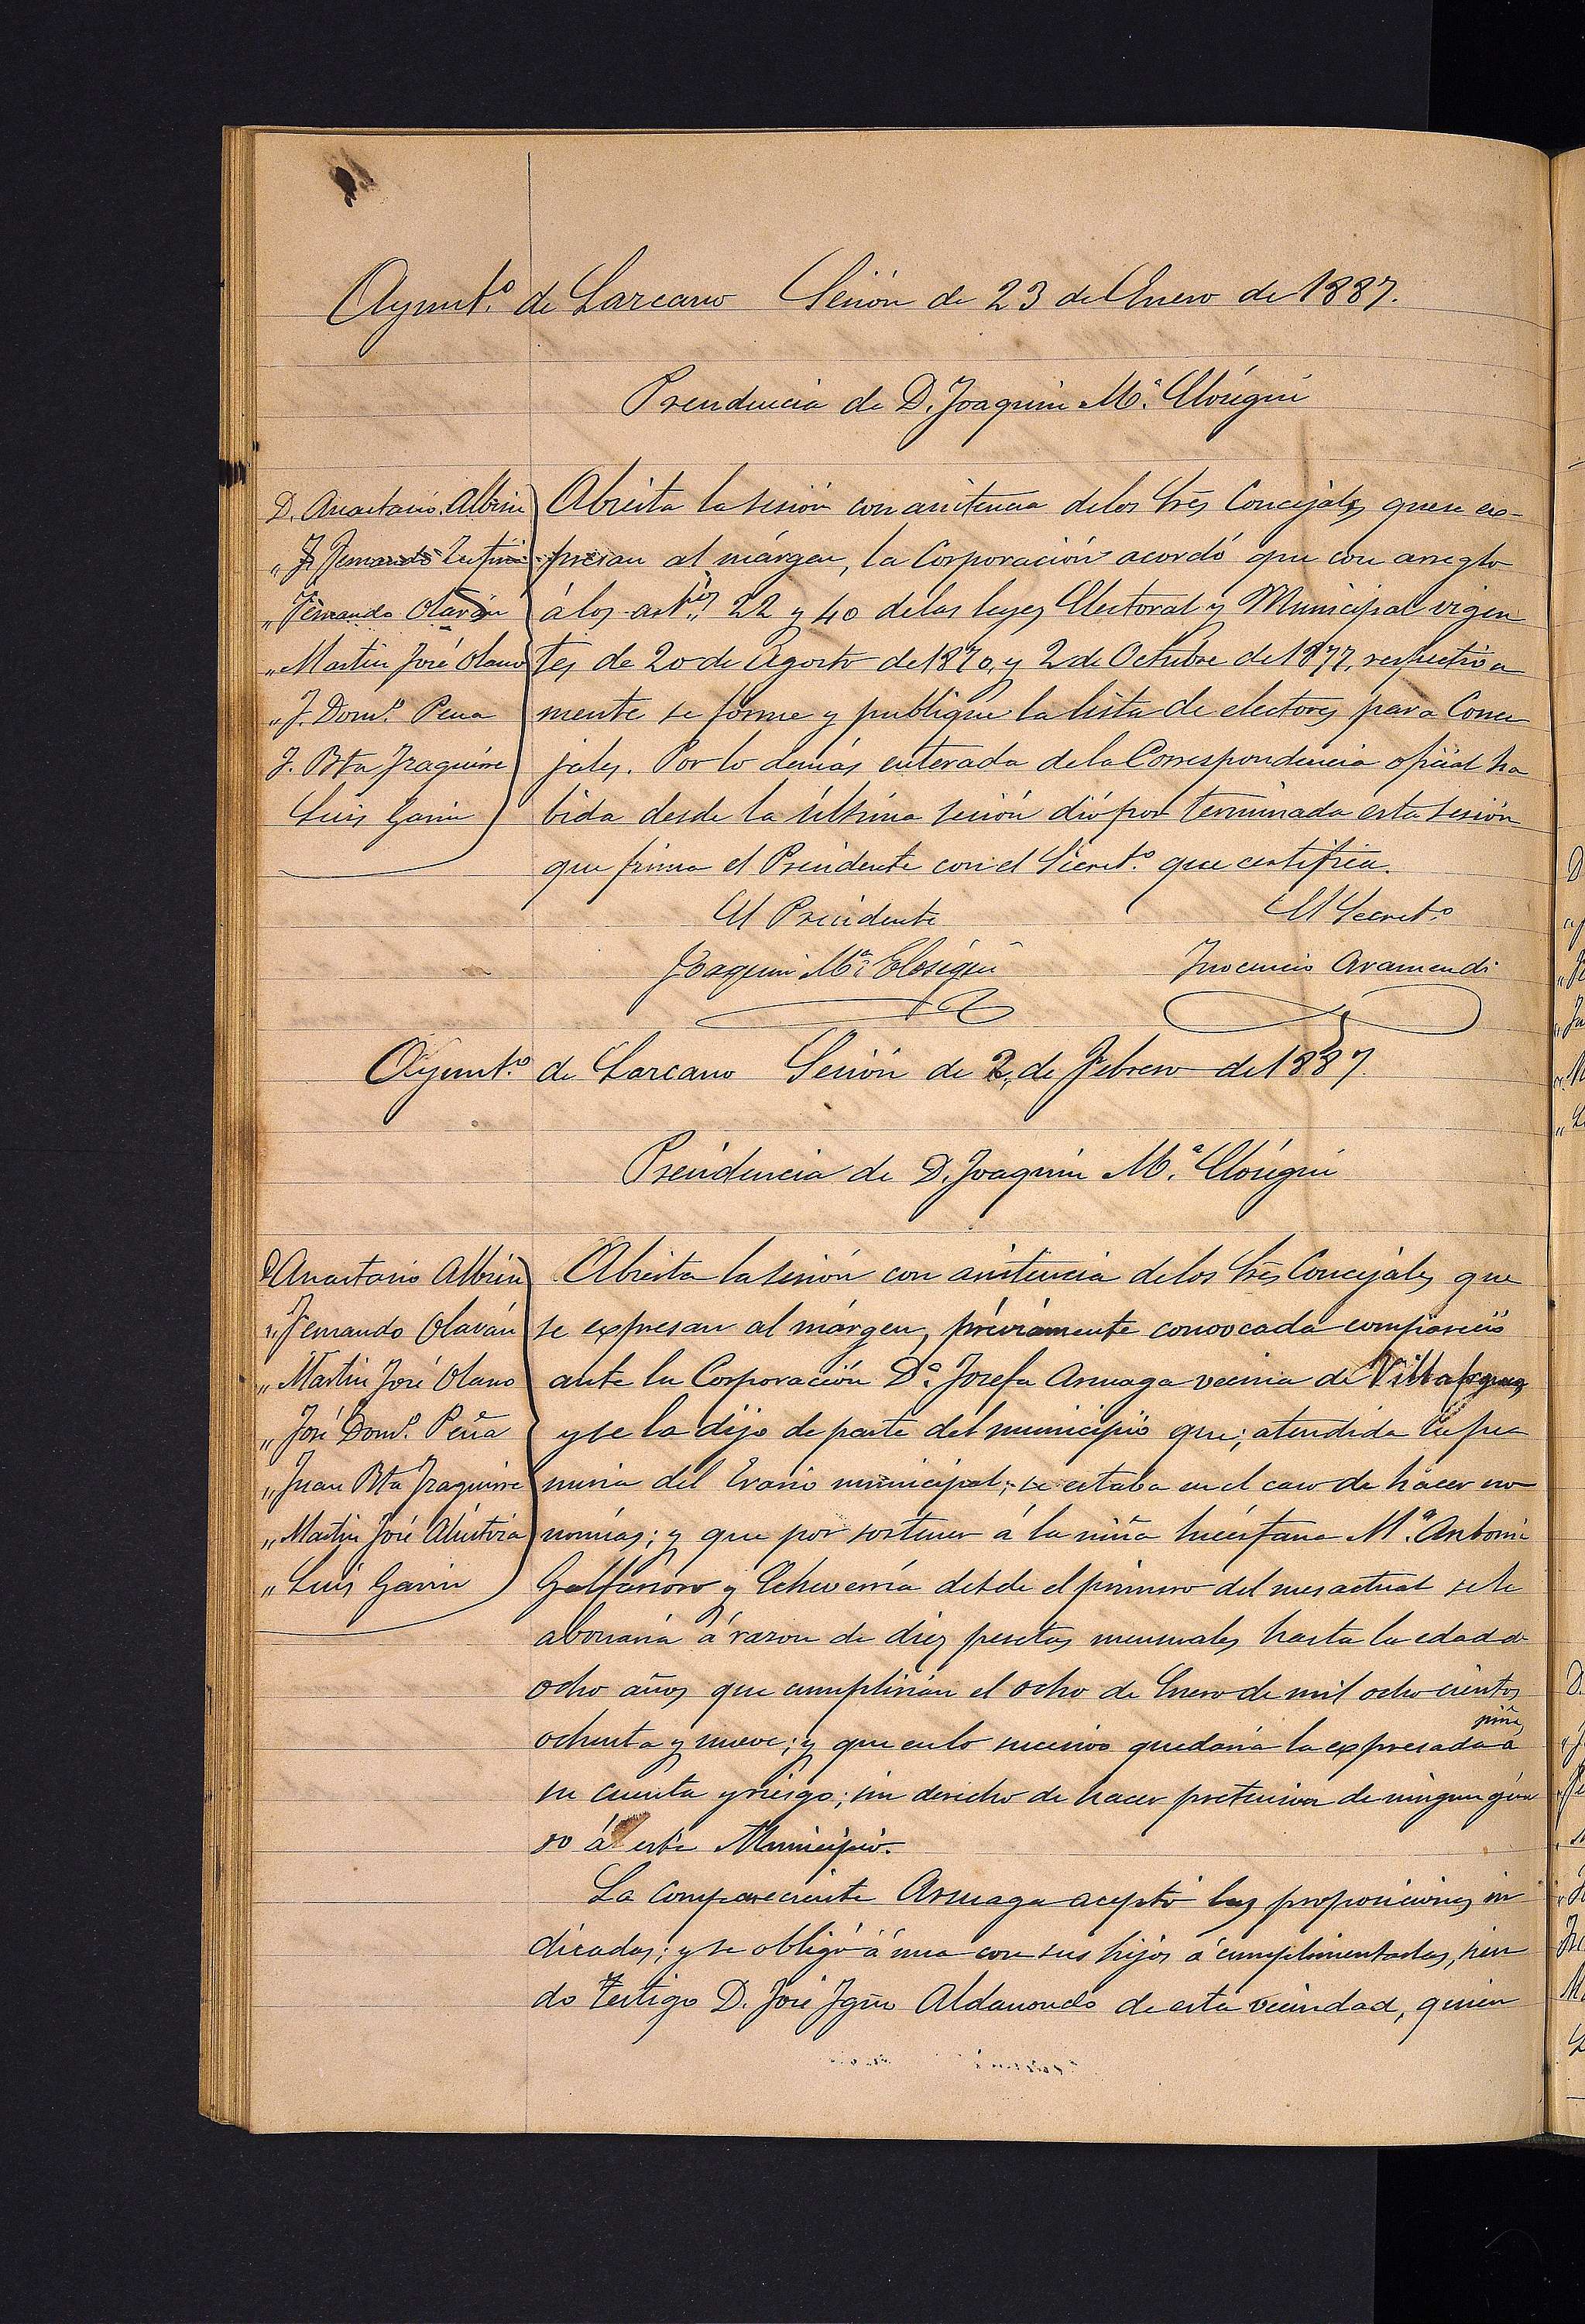 Aymt.º de Lazcano Sesión de 23 de Enero de 1887.
Presidencia de D. Joaquin M.ª Elósegui
D. Anastasio Albisu
„ Fernando
„ Fernando Olaván
„ Martin José Olano
„ J. Dom.º Peña
J. Bta Iraguirre
Luis Garin
Abierta la sesión con asistencia de los Sres Concejales que se ex-
presan al márgen, la Corporación acordó que con arreglo
á los art.ºs 22 y 40 de las leyes Electoral y Municipal vigen
tes de 20 de Agosto de 1870, y 2 de Octubre de 1877, respectiva
mente se forme y publique la lista de electores para Conce
jales. Por lo demás enterada de la Correspondencia oficial ha
bida desde la última sesión dió por terminada esta sesión
que firma el Presidente con el Secret.º que certifica.
El Presidente El Secret.º
Joaquin M.ª Elósegui Inocencio Aramendi
Ayumt.º de Lazcano Sesión de 2, de Febrero de 1887.
Presidencia de D. Joaquin M.ª Elósegui
D Anastasio Albisu
„ Fernando Olaván
„ Martin José Olano
„ José Dom.º Peña
„ Juan Bta Iraguirre
„ Martin José Aldustria
„ Luis Garin
Abierta la sesión con asistencia de los Sres Concejales que
se expresan al márgen, préviamente convocada compareció
ante la Corporación D.ª Josefa Arsuaga vecina de Villafranca
y se la dijo de parte del municipio que; atendida la pe
nuria del Erario municipal; se estaba en el caso de hacer eco
nomías; y que por sostener á la niña huérfana M.ª Antonia
Galfarsoro y Echeverría desde el primero del mes actual se le
abonaría á razon de diez pesetas mensuales hasta la edad de
ocho años que cumplirían el ocho de Enero de mil ochocientos
ochenta y nueve; y que en lo sucesivo quedaría la expresada niña á
su cuenta y riesgo; sin derecho de hacer pretension de ningun géne
ro á este Municipio.
La compareciente Arsuaga aceptó las proposiciones in
dicadas; y se obligó á una con sus hijos á cumplimentarlas, sien
do testigo D. José Igno Aldanondo de esta vecindad, quien